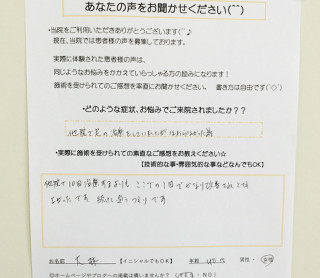 あなたの声をお聞かせください(^^)
・当院をご利用いただきありがとうございます(^^♪
現在、当院では患者様の声を募集しております。
実際に体験された患者様の声は、
同じようなお悩みをかかえていらっしゃる方の励みになります！
施術を受けられてのご感想を率直にお聞かせください。 書き方は自由です('◇')
・どのような症状、お悩みでご来院されましたか？？
他院で足の治療をしていましたが
・実際に施術を受けられての素直なご感想をお教えください☆
【技術的な事・雰囲気的な事などなんでもOK】
他院で10回治療するよりも ここでの1回でかなり改善されとても
よかったです 続けて通うつもりです
お名前 【イニシャルでもOK】 年齢 代 男性・女性
◎ホームページやブログへの掲載は構いませんか？ (YES・NO)